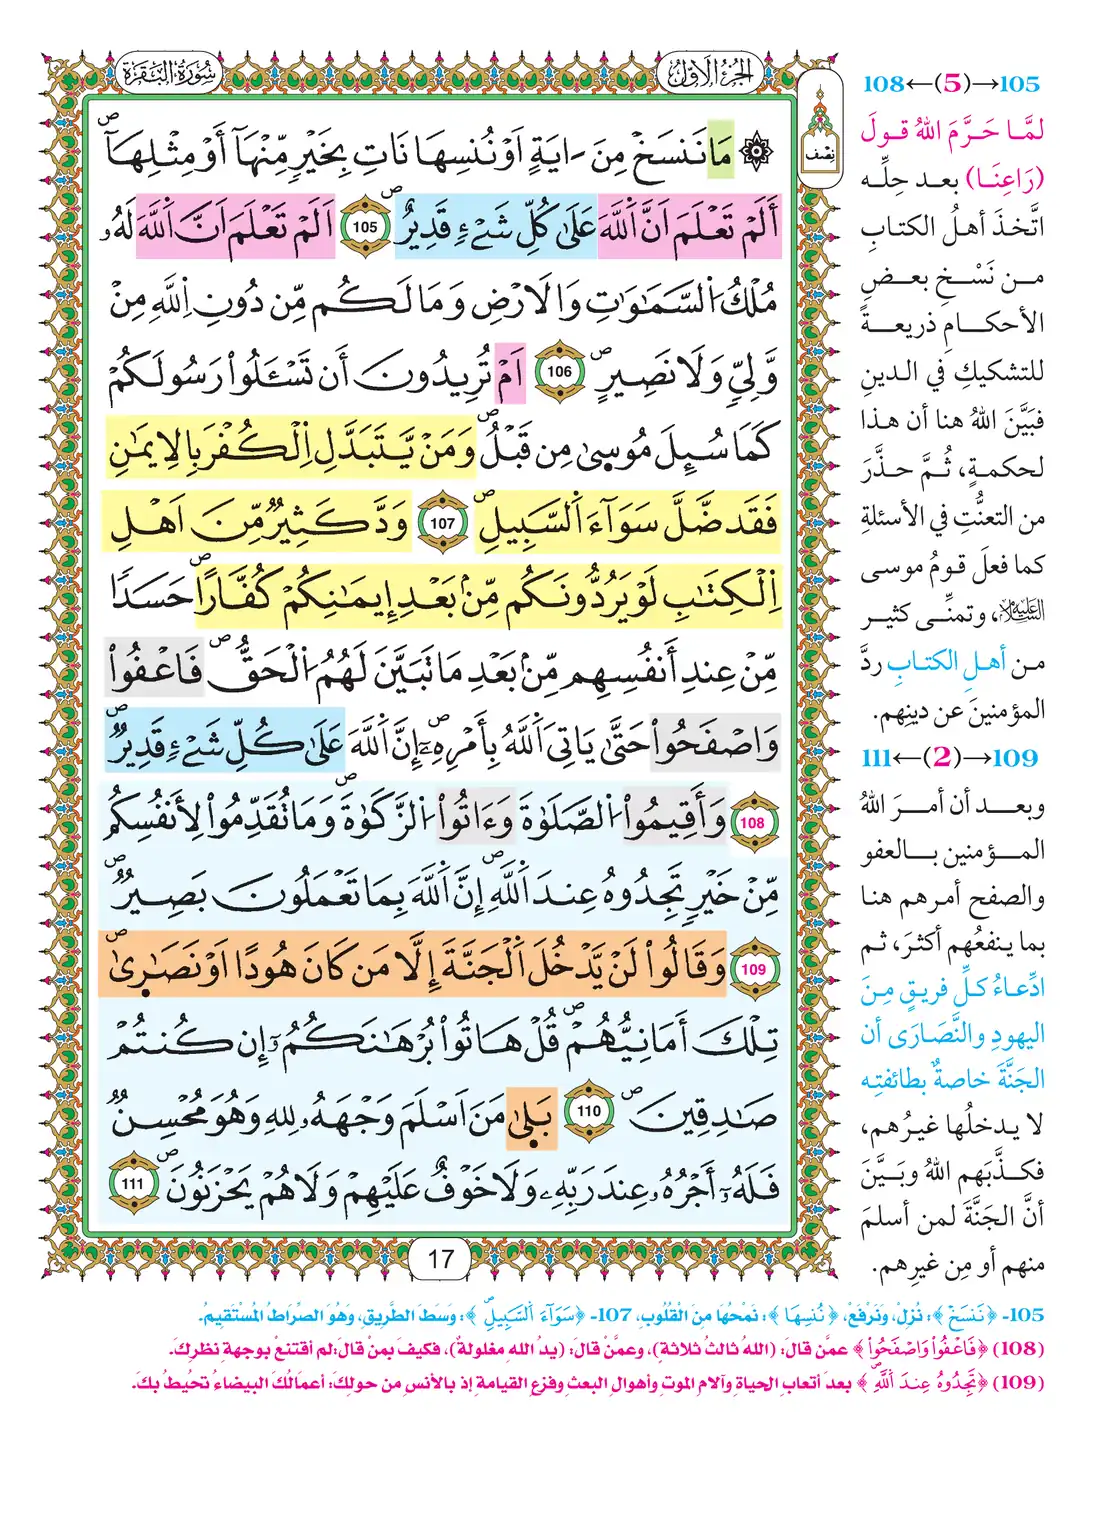 سُورَةُ الْبَقَرَةِ
الجُزْءُ الأوَّلُ
نِصْف
۞ مَا نَنسَخْ مِنَ ـايَةٍ اَوْ نُنسِهَا نَاتِ بِخَيْرٍ مِّنْهَآ أَوْ مِثْلِهَآ
أَلَمْ تَعْلَمَ اَنَّ اَ۬للَّهَ عَلَىٰ كُلِّ شَےْءٖ قَدِيرٌ 105 اَلَمْ تَعْلَمَ اَنَّ اَ۬للَّهَ لَهُۥ
مُلْكُ اُ۬لسَّمَٰوَٰتِ وَالَارْضِ وَمَا لَكُم مِّن دُونِ اِ۬للَّهِ مِنْ
وَّلِيّٖ وَلَا نَصِيرٍ 106 اَمْ تُرِيدُونَ أَن تَسْـَٔلُواْ رَسُولَكُمْ
كَمَا سُئِلَ مُوسىٰ مِن قَبْلُ وَمَنْ يَّتَبَدَّلِ اِ۬لْكُفْرَ بِالِايمَٰنِ
فَقَد ضَّلَّ سَوَآءَ اَ۬لسَّبِيلِ 107 وَدَّ كَثِيرٌ مِّنَ اَهْلِ
اِ۬لْكِتَٰبِ لَوْ يَرُدُّونَكُم مِّنۢ بَعْدِ إِيمَٰنِكُمْ كُفَّارًا حَسَدًا
مِّنْ عِندِ أَنفُسِهِم مِّنۢ بَعْدِ مَا تَبَيَّنَ لَهُمُ اُ۬لْحَقُّ فَاعْفُواْ
وَاصْفَحُواْ حَتَّىٰ يَاتِىَ اَ۬للَّهُ بِأَمْرِهِۦٓ إِنَّ اَ۬للَّهَ عَلَىٰ كُلِّ شَےْءٖ قَدِيرٌ
108 وَأَقِيمُواْ اُ۬لصَّلَوٰةَ وَءَاتُواْ اُ۬لزَّكَوٰةَ وَمَا تُقَدِّمُواْ لِأَنفُسِكُم
مِّنْ خَيْرٖ تَجِدُوهُ عِندَ اَ۬للَّهِ إِنَّ اَ۬للَّهَ بِمَا تَعْمَلُونَ بَصِيرٌ
109 وَقَالُواْ لَنْ يَّدْخُلَ اَ۬لْجَنَّةَ إِلَّا مَن كَانَ هُودًا اَوْ نَصَٰرىٰ
تِلْكَ أَمَانِيُّهُمْ قُلْ هَاتُواْ بُرْهَٰنَكُمُۥٓ إِن كُنتُمْ
صَٰدِقِينَ 110 بَلىٰ مَنَ اَسْلَمَ وَجْهَهُۥ لِلهِ وَهُوَ مُحْسِنٌ
فَلَهُۥٓ أَجْرُهُۥ عِندَ رَبِّهِۦ وَلَا خَوْفٌ عَلَيْهِمْ وَلَا هُمْ يَحْزَنُونَ 111
17
105→(5)←108
لمَّا حَرَّمَ اللهُ قولَ
(رَاعِنَا) بعد حِلِّه
اتَّخذَ أهلُ الكتابِ
من نَسْخِ بعضِ
الأحكامِ ذريعةً
للتشكيكِ في الدينِ
فبَيَّنَ اللهُ هنا أن هذا
لحكمةٍ، ثُمَّ حذَّرَ
من التعنُّتِ في الأسئلةِ
كما فعلَ قومُ موسى
عليه السلام، وتمنِّي كثير
من أهلِ الكتابِ ردَّ
المؤمنينَ عن دينِهم.
109→(2)←111
وبعد أن أمرَ اللهُ
المؤمنين بالعفو
والصفح أمرهم هنا
بما ينفعُهم أكثرَ، ثم
ادِّعاءُ كلِّ فريقٍ مِنَ
اليهودِ والنَّصَارَى أن
الجَنَّةَ خاصةٌ بطائفتِه
لا يدخلُها غيرُهم،
فكذَّبَهم اللهُ وبَيَّنَ
أنَّ الجَنَّةَ لمن أسلمَ
منهم أو مِن غيرِهم.
105- ﴿نَنسَخْ﴾: نُزِلْ، ونَرفَعْ، ﴿نُنسِهَا﴾: نَمْحُهَا مِنَ الْقُلُوبِ، 107- ﴿سَوَآءَ اَ۬لسَّبِيلِ﴾: وَسَطَ الطَّرِيقِ، وَهُوَ الصِّرَاطُ المُسْتَقِيمُ.
(108) ﴿فَاعْفُواْ وَاصْفَحُواْ﴾ عمَّن قالَ: (اللهُ ثالثُ ثلاثةٍ)، وعمَّنْ قالَ: (يدُ اللهِ مغلولةٌ)، فكيفَ بمَنْ قال: لم أقتنعْ بوجهةِ نظرِكَ.
(109) ﴿تَجِدُوهُ عِندَ اَ۬للَّهِ﴾ بعدَ أتعابِ الحياةِ وآلامِ الموتِ وأهوالِ البعثِ وفزعِ القيامةِ إذ بالأنسِ من حولِكَ: أعمالُكَ البيضاءُ تحُيطُ بكَ.